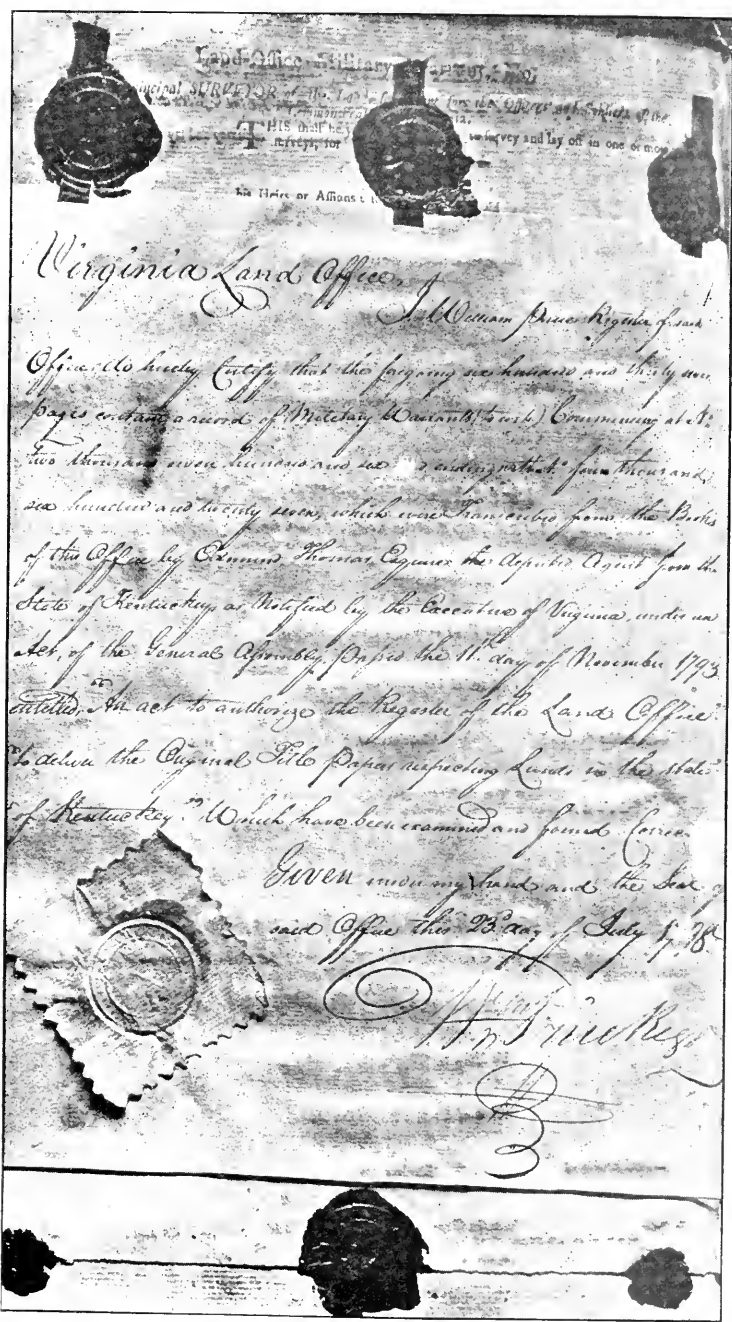 Land-Office Military
SURVEYOR of the
THIS shall be to survey and lay off in one or more
surveys, for
his Heirs or Assigns
Virginia Land Office,
I William Price Register of said
Office do hereby Certify that the foregoing six hundred and thirty
pages contain a record of Military Warrants (to wit) Commencing at No.
two thousand seven hundred and six & ending with four thousand
six hundred and twenty seven, which were Transcribed from the Books
of this Office by Edmund Thomas Esquire the deputed Agent from the
State of Kentuckey as Notified by the Executive of Virginia, under an
Act, of the General Assembly, passed the 11th. day of November 1793
entitled "An act to authorize the Register of the Land Office
To deliver the Original Title Papers respecting Lands in the state
of Kentuckey." Which have been examined and found Correc
Given under my hand and the Seal of
said Office this 23d day of July
Wm Price Regr